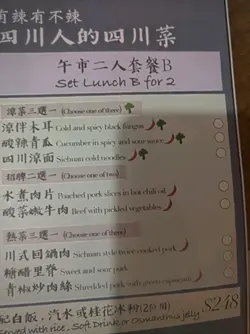 有辣有不辣
四川人的四川菜
午市二人套餐B
Set Lunch B for 2
涼菜三選一 (Choose one of three)
涼伴木耳 Cold and spicy black fungus
酸辣青瓜 Cucumber in spicy and sour sauce
四川涼面 Sichuan cold noodles
招牌二選一 (Choose one of two)
水煮肉片 Poached pork slices in hot chili oil
酸菜嫩牛肉 Beef with pickled vegetables
熱菜三選一 (Choose one of three)
川式回鍋肉 Sichuan style twice cooked pork
糖醋里脊 Sweet and sour pork
青椒炒肉絲 Shredded pork with green capsicum
配白飯，汽水或桂花冰粉(2位用)
Served with rice, Soft Drink or Osmanthus jelly
$248